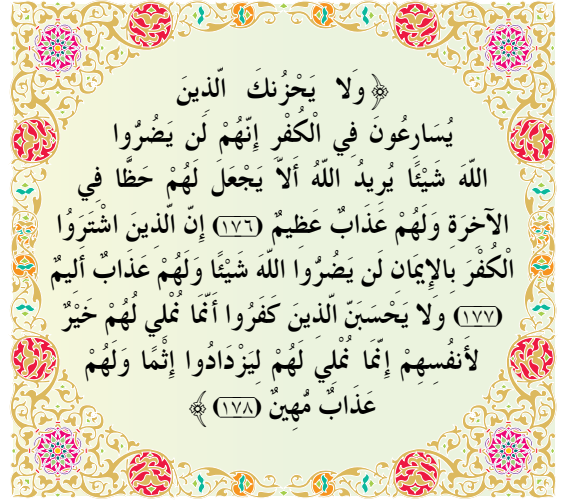 ﴿وَلا يَحْزُنكَ الّذِينَ
يُسَارِعُونَ فِي الْكُفْرِ إِنّهُمْ لَن يَضُرُّوا
اللّهَ شَيْئًا يُرِيدُ اللّهُ أَلاّ يَجْعَلَ لَهُمْ حَظًّا فِي
الآخِرَةِ وَلَهُمْ عَذَابٌ عَظِيمٌ (١٧٦) إِنّ الّذِينَ اشْتَرَوُا
الْكُفْرَ بِالإِيمَانِ لَن يَضُرُّوا اللّهَ شَيْئًا وَلَهُمْ عَذَابٌ أَلِيمٌ
(١٧٧) وَلا يَحْسَبَنّ الّذِينَ كَفَرُوا أَنّمَا نُمْلِي لَهُمْ خَيْرٌ
لأَنفُسِهِمْ إِنّمَا نُمْلِي لَهُمْ لِيَزْدَادُوا إِثْمًا وَلَهُمْ
عَذَابٌ مُّهِينٌ (١٧٨)﴾